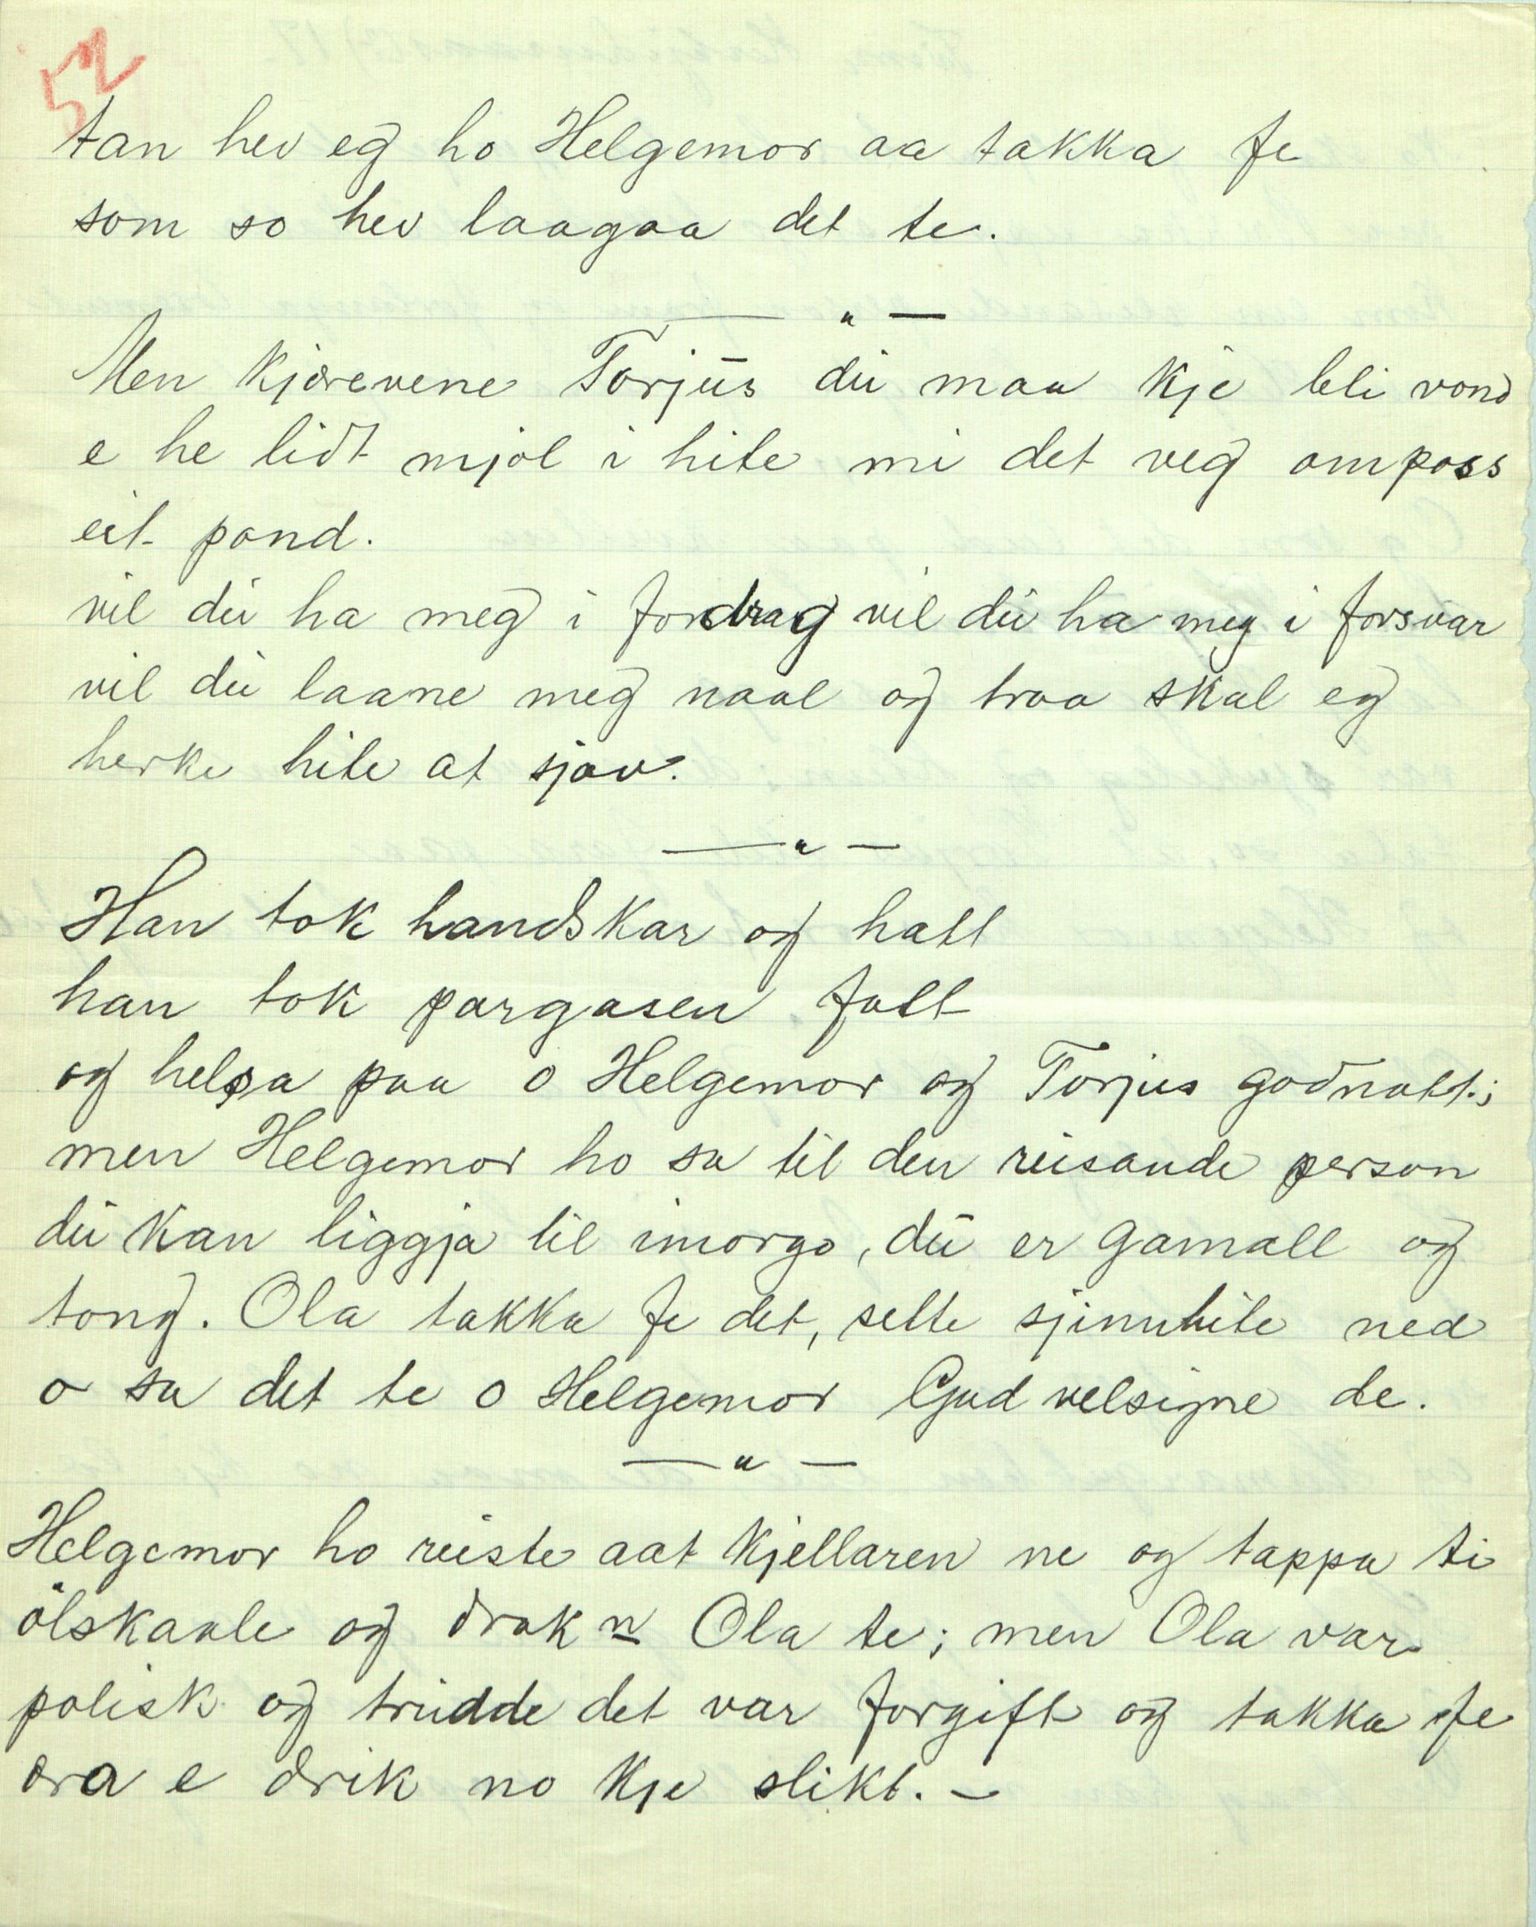 52
tan hev eg ho Helgemor aa takka fe
som so hev laagaa det te.
— " —
Men kjærevene Torjus du maa kje bli vond
e he lidt mjøl i hite mi det veg ompass
eit pond.
vil du ha meg i fordrag vil du ha meg i forsvar
vil du laane meg naal og traa skal eg
herke hite at sjøv.
— " —
Han tok handskar og hatt
han tok pargasen fatt
og helsa paa o Helgemor og Torjus godnatt;
men Helgemor ho sa til den reisande person
du kan liggja til imorgo, du er gamall og
tong. Ola takka fe det, sette sjinnhite ned
o sa det te o Helgemor Gud velsigne de.
— " —
Helgemor ho reiste aat kjellaren ne og tappa ti
ølskaale og drak n Ola te; men Ola var
polisk og trudde det var forgift og takka fe
æra e drik no kje slikt. —